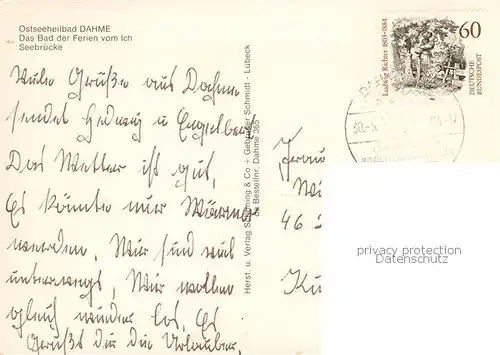 Ostseeheilbad DAHME
Das Bad der Ferien vom Ich
Seebrücke
Viele Grüße aus Dahme
sendet Hedwig u Engelbert
Das Wetter ist gut,
Es könnte nur Wärmer
werden. Wir sind viel
unterwegs, Wir wollen
gleich wieder los. Es
Grüßt dir die Urlauber.
Herst. u. Verlag Schöning & Co + Gebrüder Schmidt - Lübeck
Bestellnr. Dahme 365
Ludwig Richter 1803-1884
60
DEUTSCHE
BUNDESPOST
30.-5.
-17
Frau
46
privacy protection
Datenschutz